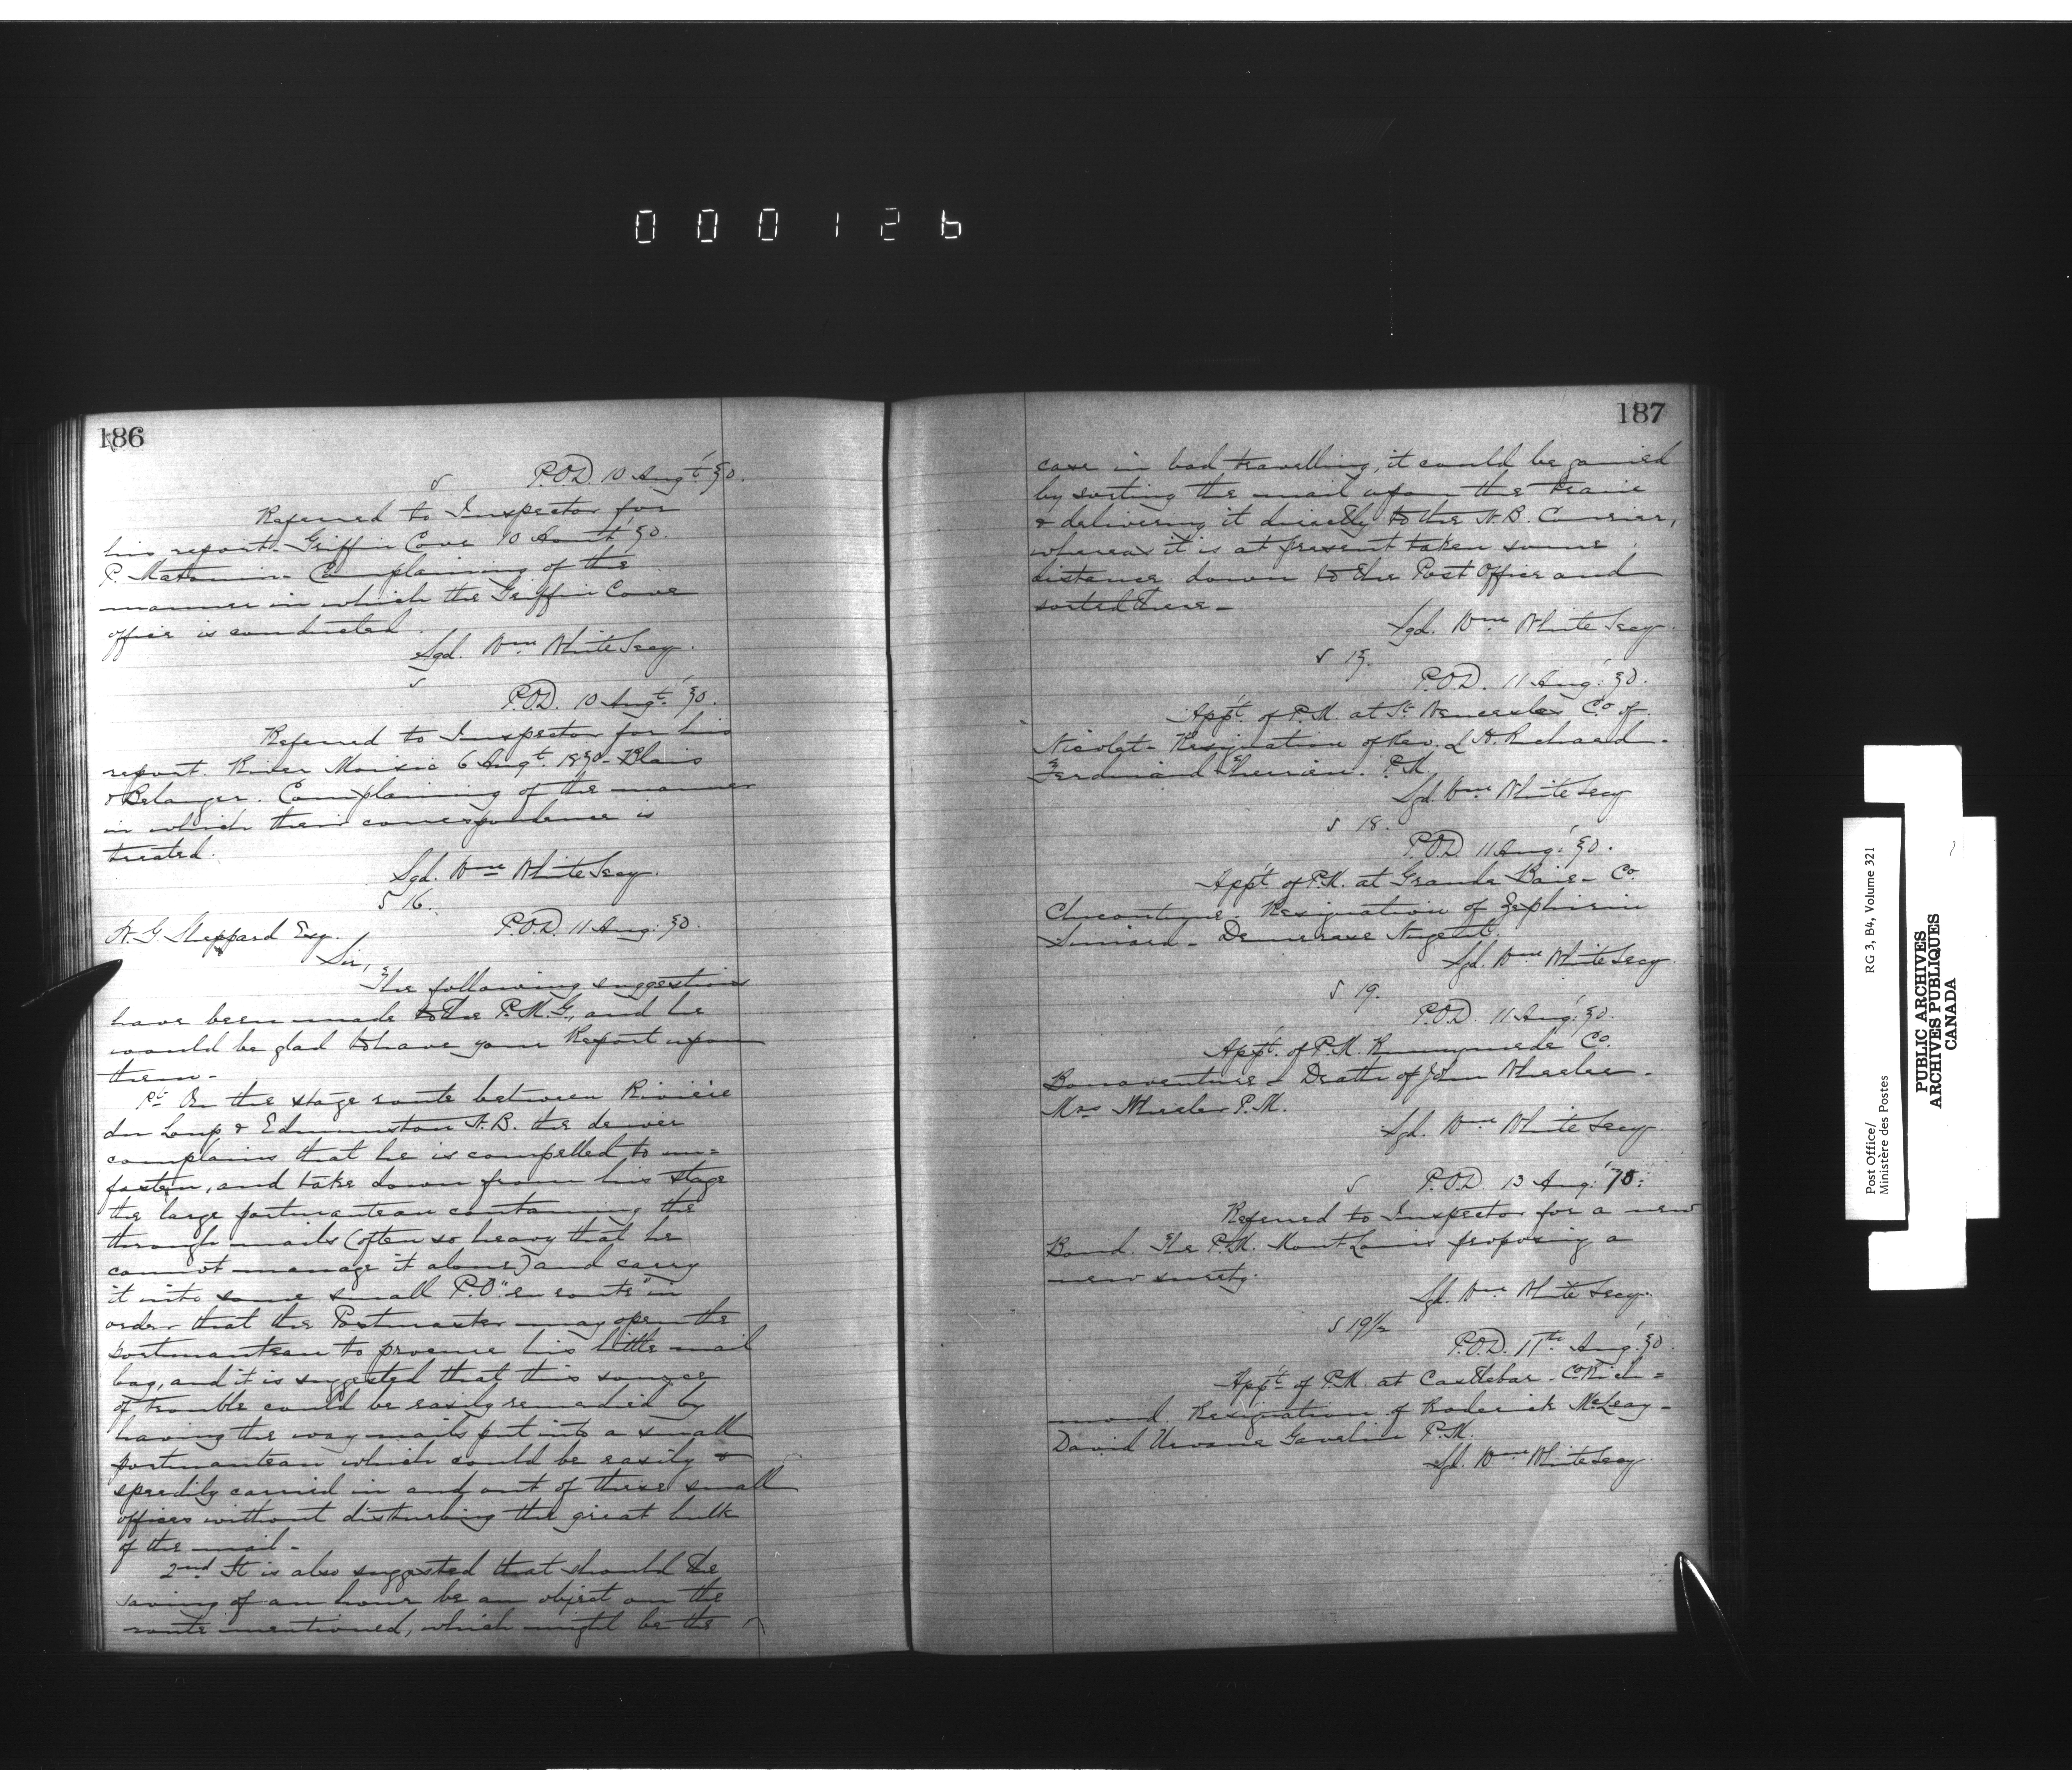 000126
186
P.O.D. 10 Augt '70.
Referred to Inspector for
his report. Griffin Cove 10 '70.
P. Complaining of the
manner in which the Griffin Cove
office is conducted.
Sgd. Wm White Secy.
P.O.D. 10 Augt '70.
Referred to Inspector for his
report. River Moisic 6 Augt. 1870 - Blais
& Belanger. Complaining of the manner
in which their correspondence is
treated.
Sgd. Wm White Secy.
S 16.
P.O.D. 11 Aug: 70.
Sheppard Esq.
Sir,
The following suggestions
have been made to the P.M.G, and he
would be glad to have your Report upon
them -
1st On the stage route between Rivière
du Loup & Edmunston N.B. the driver
complains that he is compelled to un=
fasten, and take down from his stage
the large portmanteau containing the
through mails (often so heavy that he
cannot manage it alone) and carry
it into some small P.O. "en route" in
order that the Postmaster may open the
portmanteau to procure his little mail
bag, and it is suggested that this source
of trouble could be easily remedied by
having the way mails put into a small
portmanteau which could be easily &
speedily carried in and out of these small
offices without disturbing the great bulk
of the mail -
2nd It is also suggested that should the
saving of an hour be an object on the
route mentioned, which might be the
187
case in bad travelling, it could be gained
by sorting the mail upon the train
& delivering it directly to the N.B. Courier,
whereas it is at present taken some
distance down to the Post Office and
sorted there -
Sgd. Wm White Secy.
S 17.
P.O.D. 11 Aug: '70.
Appt. of P.M. at St Wenceslas Co of
Nicolet - Resignation of Rev. L A. Richard -
Ferdinand Therrien. P.M.
Sgd. Wm White Secy
S 18.
P.O.D. 11 Aug: '70.
Appt. of P.M. at Grande Baie - Co.
Chicoutimi - Resignation of Zephirin
Simard -
Sgd. Wm White Secy.
S 19.
P.O.D. 11 Aug: '70.
Appt. of P.M. Runnymede Co.
Bonaventure - Death of John Wheeler -
Mrs Wheeler P.M.
Sgd. Wm White Secy
P.O.D. 13 Aug: '70:
Referred to Inspector for a new
Bond. The P.M. Mont Louis proposing a
new surety.
Sgd. Wm White Secy.
S 19 1/2
P.O.D. 11th Aug: '70
Appt of P.M. at Castlebar - Co Rich=
mond. Resignation of Roderick McLeay -
David P.M.
Sgd. Wm White Secy.
Post Office/
Ministère des Postes
RG 3, B4, Volume 321
PUBLIC ARCHIVES
ARCHIVES PUBLIQUES
CANADA